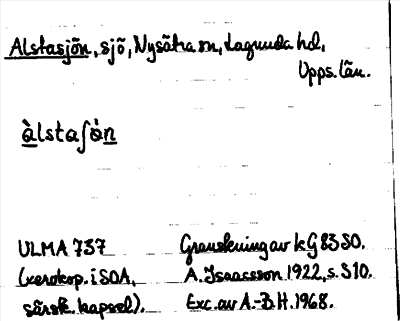 Alstasjön, sjö, Nysätra sn, Lagunda hd,
Upps. län.
àlstaʃòn
ULMA 737 Granskning av kG 83 SO.
(xerokop. i SOA, A. Isaacsson 1922, s. S10.
särsk. kapsel). Exc. av A.-B. H. 1968.